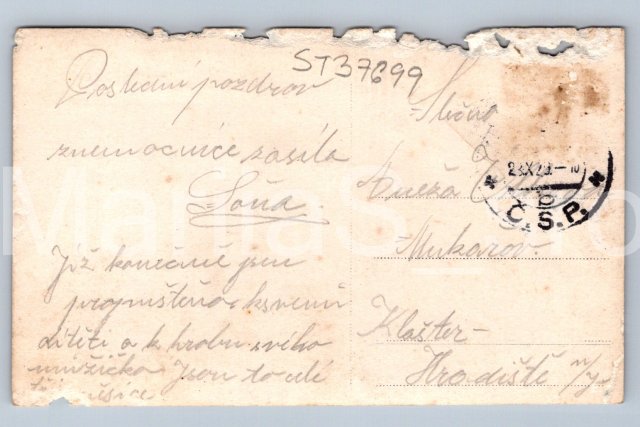 ST37699
Poslední pozdrov
znemocnice zasíla
Soňa
Již konečně jsem
propuštěna k svemu
dítěti a k hrobu svého
mužíčka Jsem to celé
Slečna
Anežá
Mukarov.
Klášter-
Hradiště n/J.
23.X.29.-10
Č.S.P.